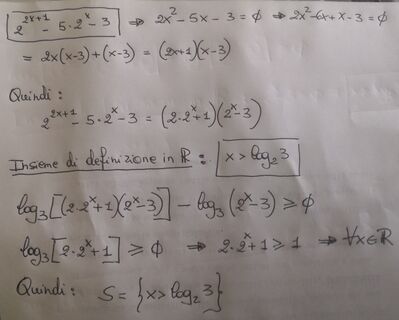 2^{2x+1} - 5·2^x - 3 ⇒ 2x² - 5x - 3 = ∅ ⇒ 2x² - 6x + x - 3 = ∅
= 2x(x-3) + (x-3) = (2x+1)(x-3)
Quindi:
2^{2x+1} - 5·2^x - 3 = (2·2^x+1)(2^x-3)
Insieme di definizione in ℝ: x > log₂3
log₃[(2·2^x+1)(2^x-3)] - log₃(2^x-3) ≥ ∅
log₃[2·2^x+1] ≥ ∅ ⇒ 2·2^x+1 ≥ 1 ⇒ ∀x∈ℝ
Quindi: S = {x > log₂3}